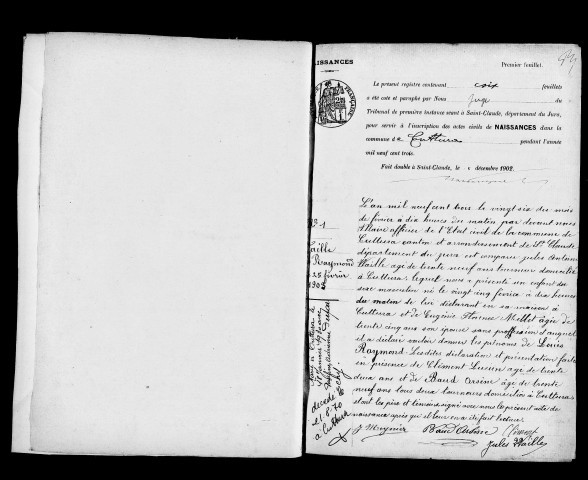 NAISSANCES
Premier feuillet.
Le présent registre contenant six feuillets
a été coté et paraphé par Nous Juge du
Tribunal de première instance séant à Saint-Claude, département du Jura,
pour servir à l'inscription des actes civils de NAISSANCES dans la
commune d e Cuttura pendant l'année
mil neuf cent trois.
Fait double à Saint-Claude, le 1 décembre 1902.
N° 1
Waille
Raymond
25 février
1903
décédé
à Cuttura
L'an mil neuf cent trois le vingt six du mois
de février à dix heures du matin par devant nous
Maire officier de l'Etat civil de la commune de
Cuttura canton et arrondissement de St Claude
département du Jura est comparu Jules
Waille âgé de trente neuf ans tourneur domicilié
à Cuttura lequel nous a présenté un enfant du
sexe masculin né le vingt cinq février à dix heures
du matin de lui déclarant en sa maison à
Cuttura et de Eugénie Millet âgée de
trente cinq ans son épouse sans profession
et a déclaré vouloir donner les prénoms de Louis
Raymond. Lesdites déclaration et présentation faites
en présence de Clément Lucien âgé de trente
deux ans et de Baud Arsène âgé de trente
neuf ans tous deux tourneurs domiciliés à Cuttura
dont les père et témoins signé avec nous le présent acte de
naissance après qu'il leur en a été fait lecture
J Meynier Baud Arsène Clément
Jules Waille